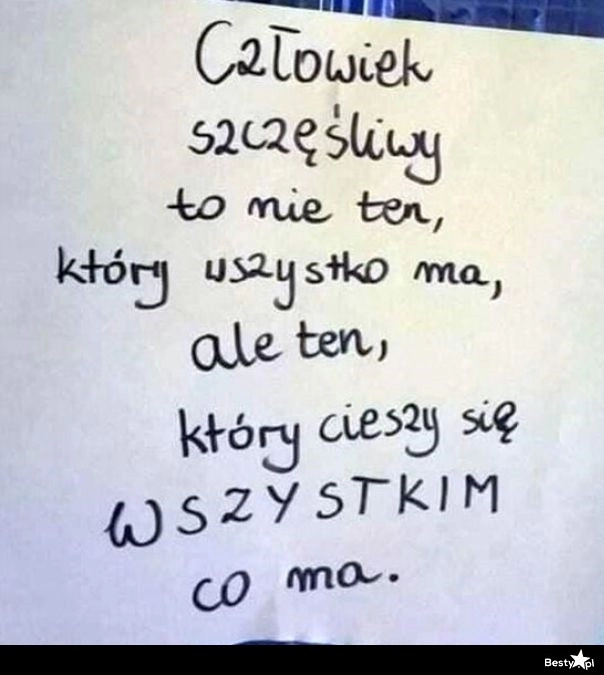 Człowiek
szczęśliwy
to nie ten,
który wszystko ma,
ale ten,
który cieszy się
WSZYSTKIM
co ma.
Besty.pl